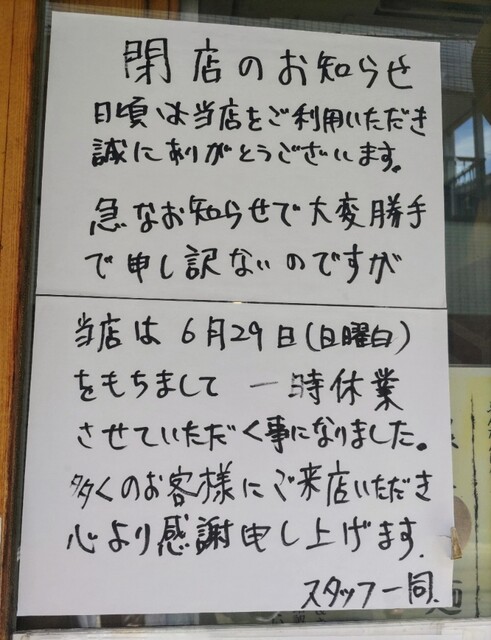 閉店のお知らせ
日頃は当店をご利用いただき
誠にありがとうございます。
急なお知らせで大変勝手
で申し訳ないのですが
当店は6月29日(日曜日)
をもちまして 一時休業
させていただく事になりました。
多くのお客様にご来店いただき
心より感謝申し上げます.
スタッフ一同.
麺